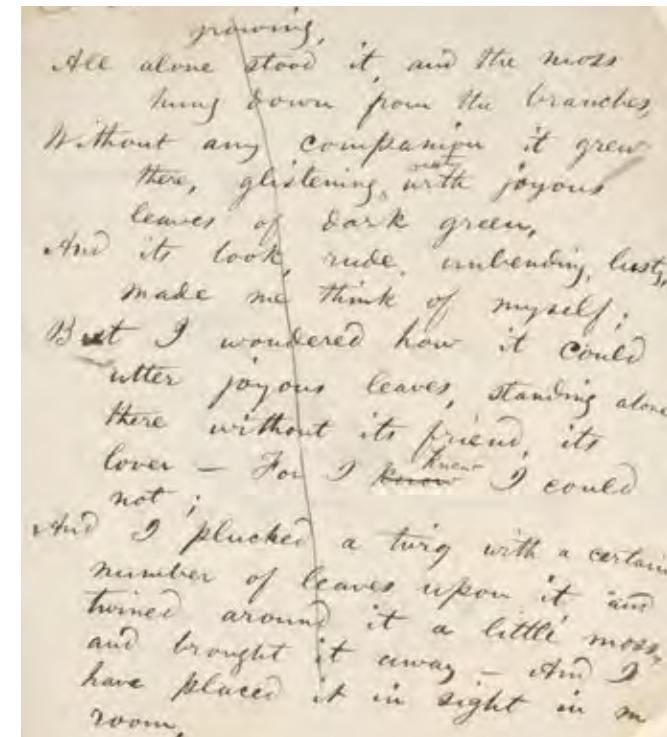 growing,
All alone stood it, and the moss
hung down from the branches,
Without any companion it grew
there, glistening out with joyous
leaves of dark green,
And its look, rude, unbending, lusty,
made me think of myself;
But I wondered how it could
utter joyous leaves, standing alone
there without its friend, its
lover — For I know knew I could
not;
And I plucked a twig with a certain
number of leaves upon it and
twined around it a little moss,
and brought it away — And I
have placed it in sight in m
room,